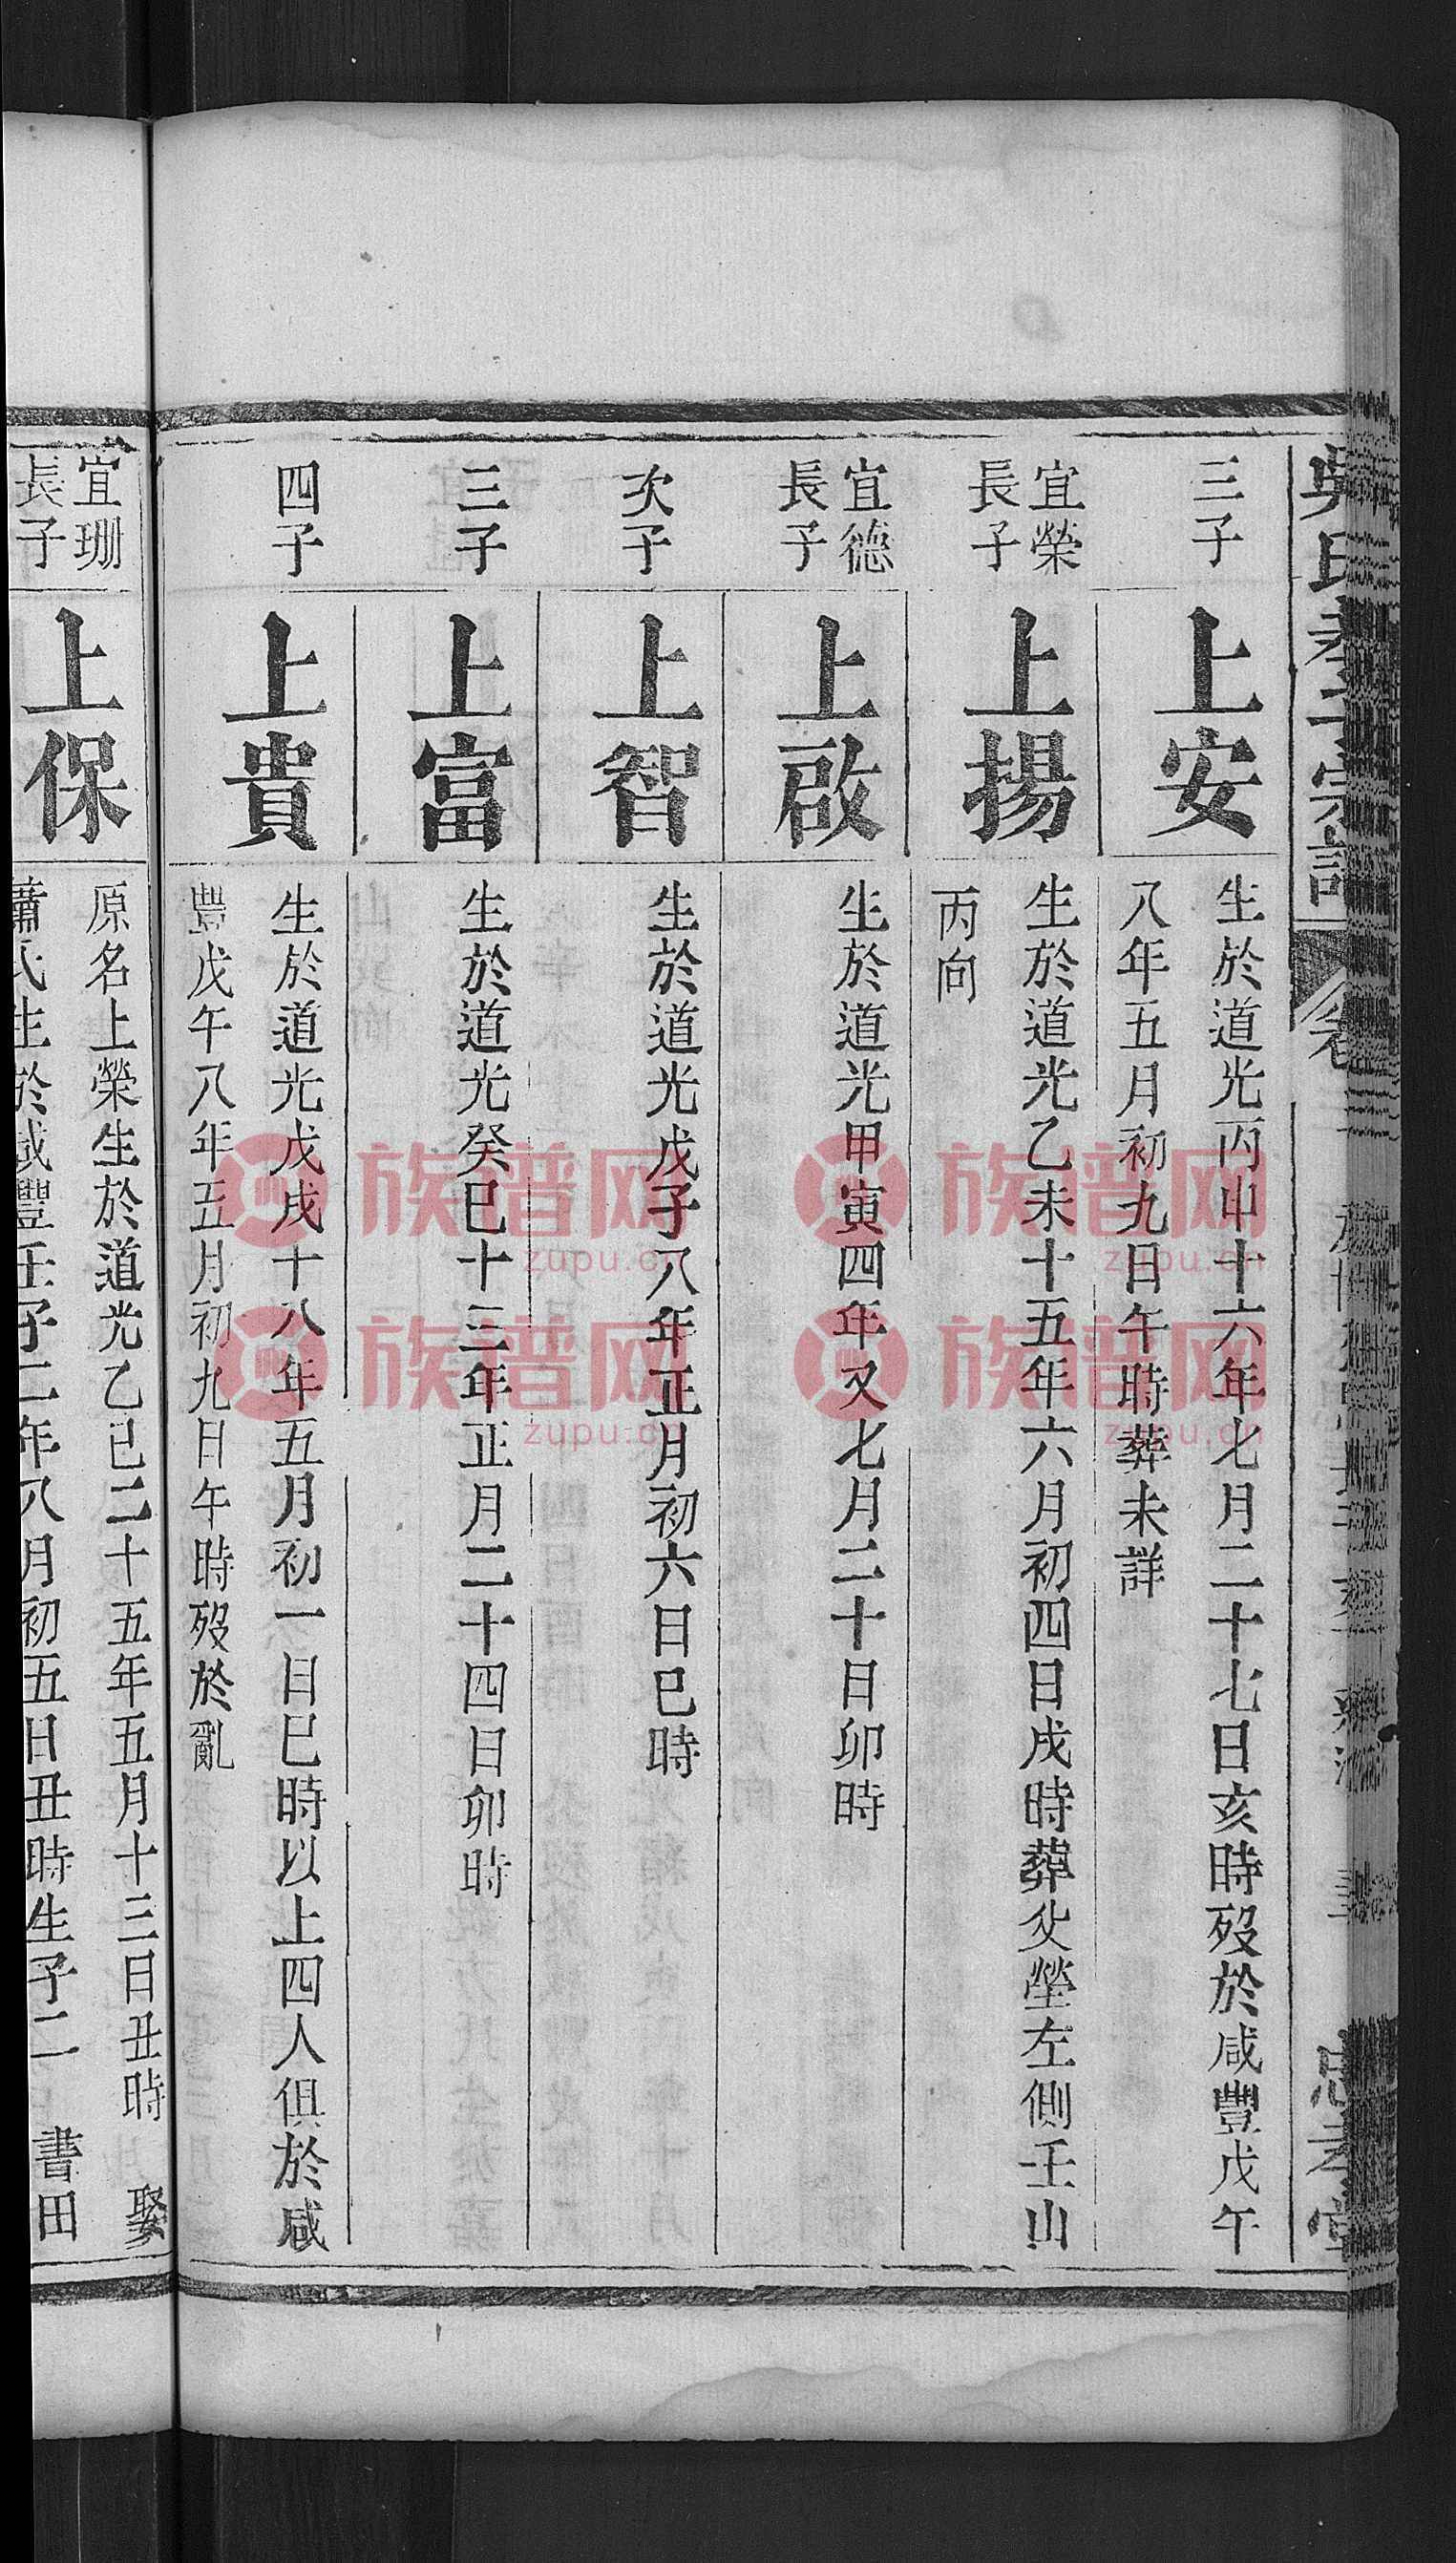 吳氏孝子宗譜
卷三
忠孝堂
三子
上安
生於道光丙申十六年七月二十七日亥時歿於咸豐戊午
八年五月初九日午時葬未詳
宜榮
長子
上揚
生於道光乙未十五年六月初四日戌時葬父塋左側壬山
丙向
宜德
長子
上啟
生於道光甲寅四年又七月二十日卯時
次子
上智
生於道光戊子八年正月初六日巳時
三子
上富
生於道光癸巳十三年正月二十四日卯時
四子
上貴
生於道光戊戌十八年五月初一日巳時以上四人俱於咸
豐戊午八年五月初九日午時歿於亂
宜珊
長子
上保
原名上榮生於道光乙巳二十五年五月十三日丑時 娶
蕭氏生於咸豐壬子二年八月初五日丑時生子二 書田
族譜网
zupu.cn
族譜网
zupu.cn
族譜网
zupu.cn
族譜网
zupu.cn